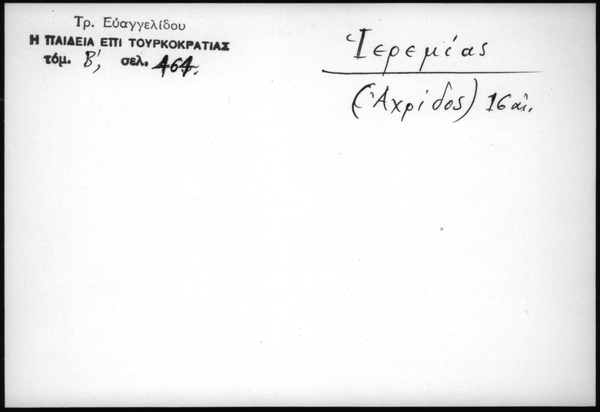 Τρ. Εὐαγγελίδου
Η ΠΑΙΔΕΙΑ ΕΠΙ ΤΟΥΡΚΟΚΡΑΤΙΑΣ
τόμ. Β΄, σελ. 464.
Ἱερεμίας
(Ἀχρίδος) 16 αἰ.